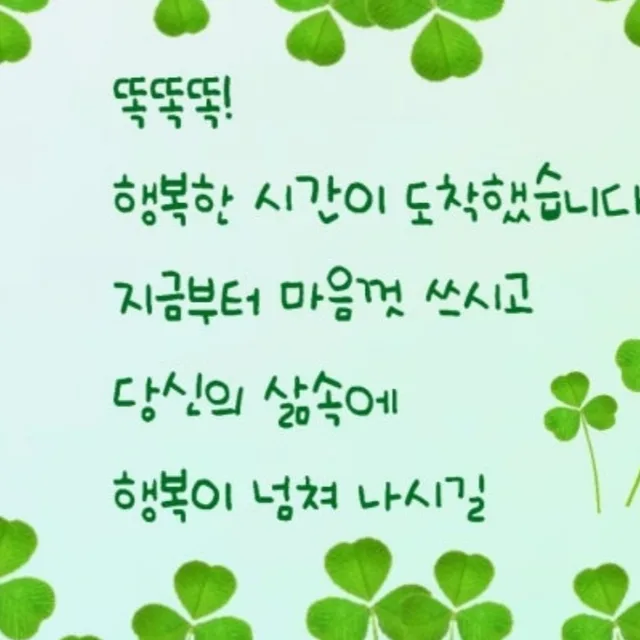 똑똑똑!
행복한 시간이 도착했습니다
지금부터 마음껏 쓰시고
당신의 삶속에
행복이 넘쳐 나시길